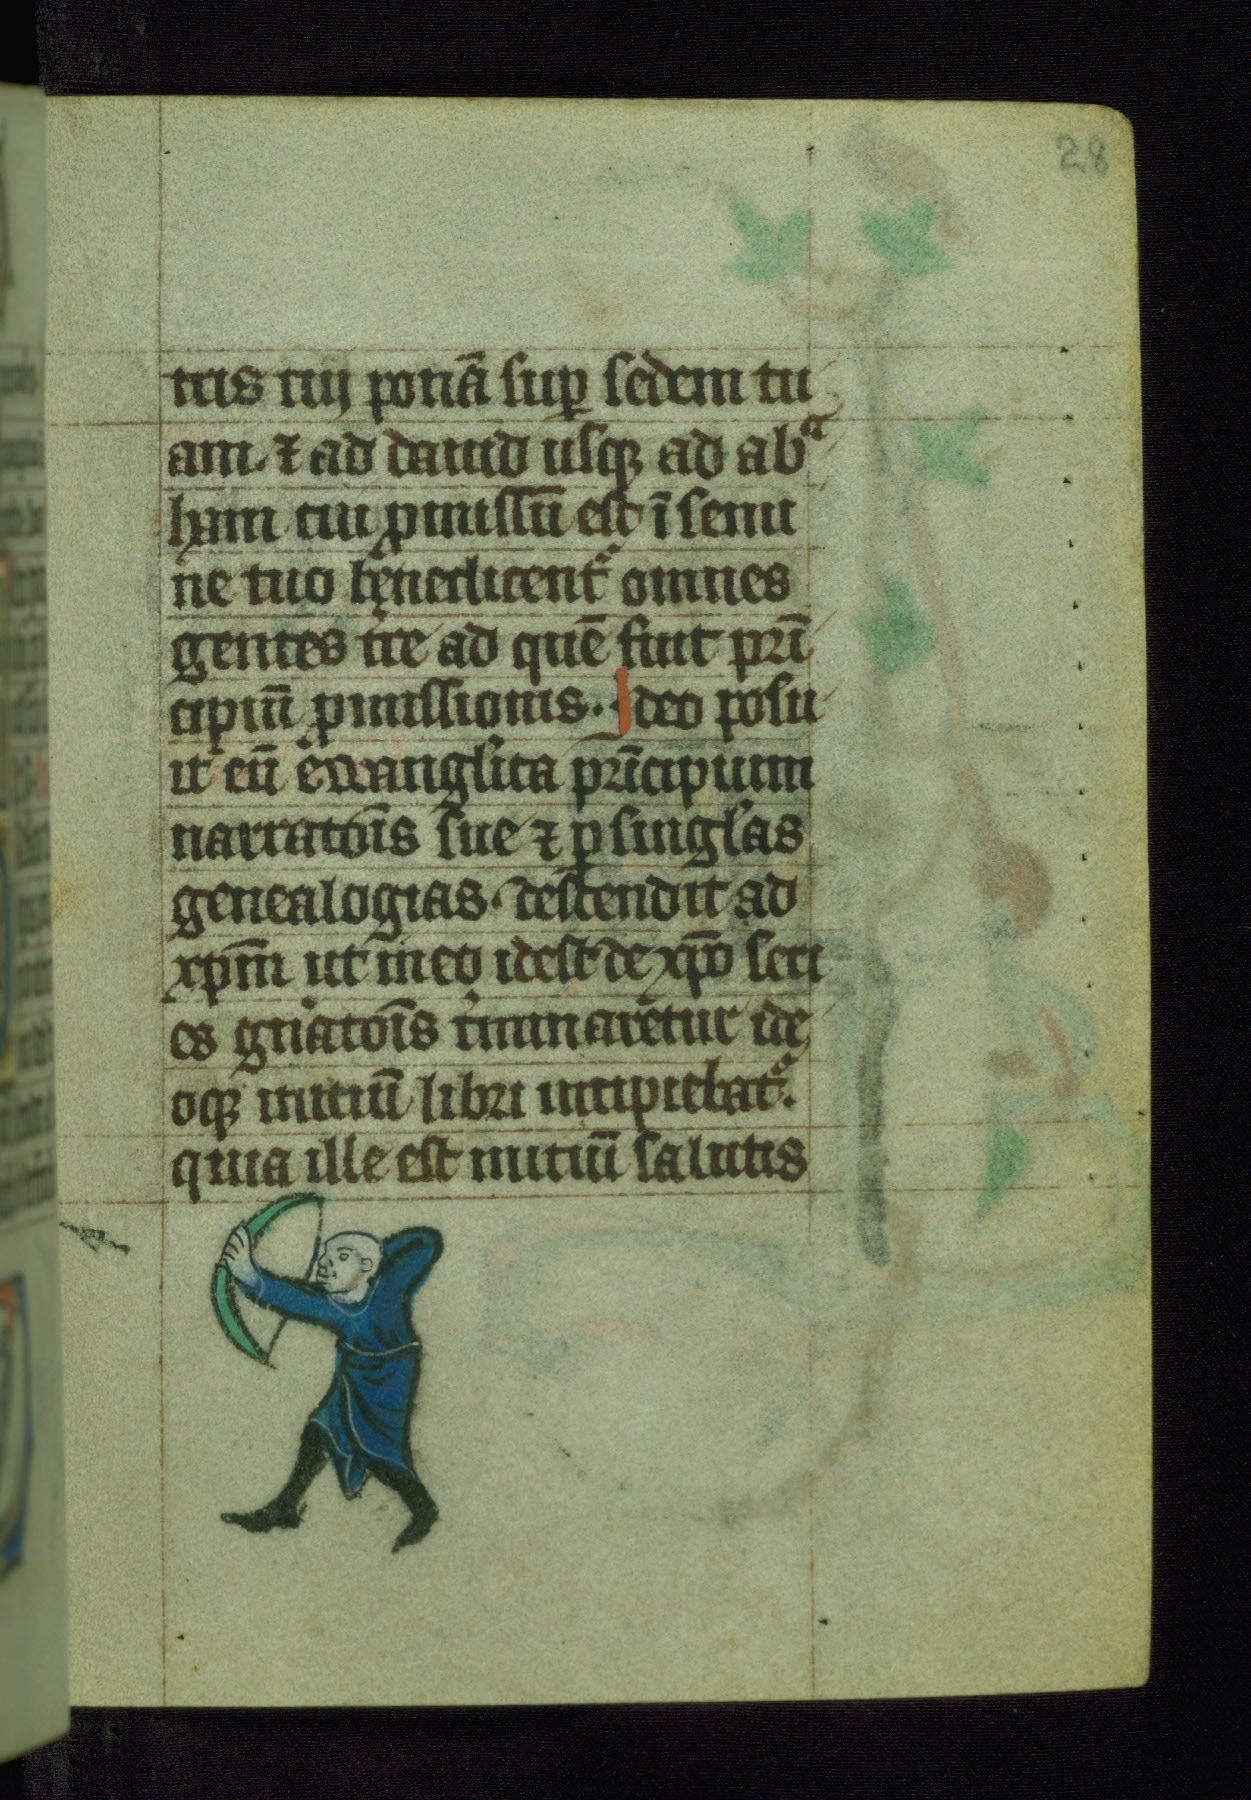 28
tris tui ponā sup sedem tu
am. ⁊ ad dauid usqȝ ad abͣ
ham cui pmissū est ī semi
ne tuo benedicent᷑ omnes
gentes tre ad quē fuit pri᷒
cipiū pmissionis. Ideo posu
it eū euuanglita prīcipium
narratōis sue ⁊ p singlas
genealogias. descendit ad
xpm̄ ut in eo idest de xpō seri
es gnatōis tminaretur ide
oqȝ initiū libri incipiebat᷑.
quia ille est initiū salutis